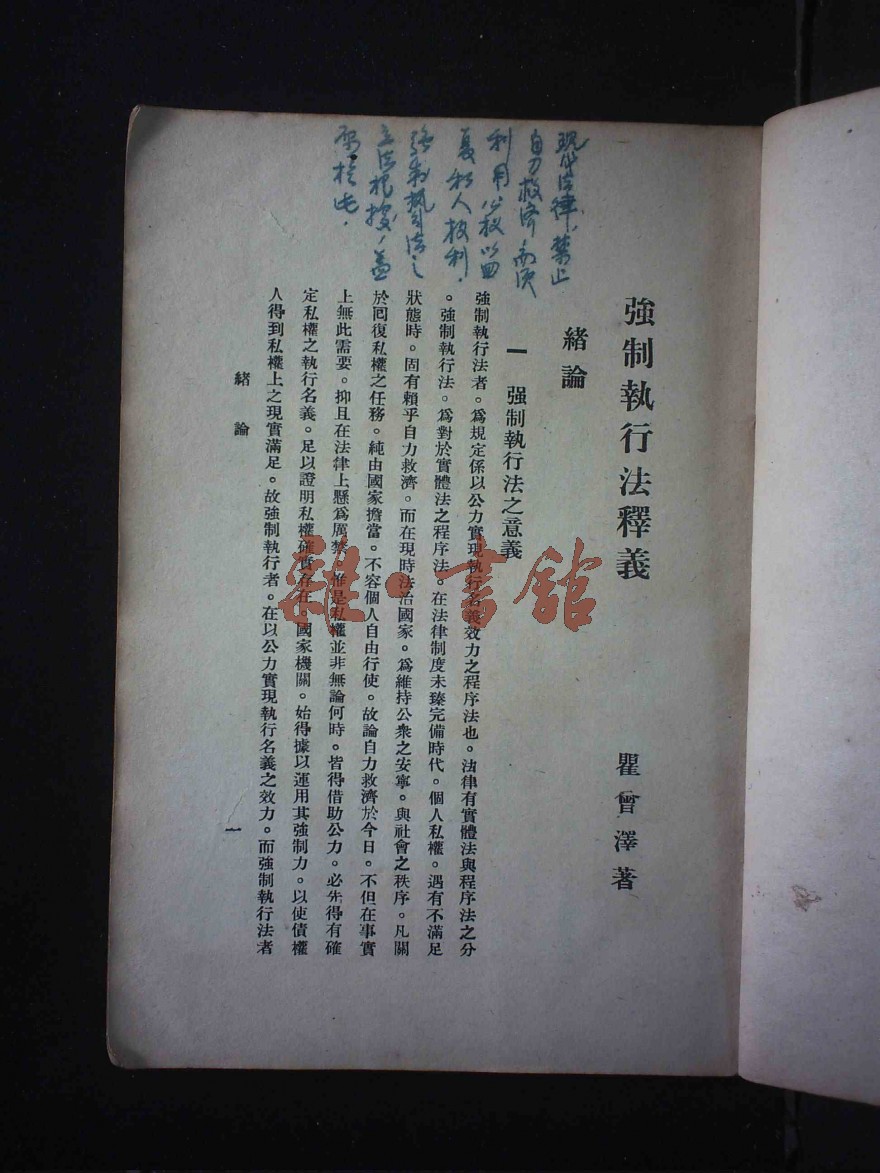 現代法律，禁止
自力救濟，而須
利用公权以回
复私人权利，
強制執行法之
立法根據，蓋
強制執行法釋義
瞿曾澤著
緒論
一 强制執行法之意義
強制執行法者。爲規定係以公力實現執行名義效力之程序法也。法律有實體法與程序法之分
。強制執行法。爲對於實體法之程序法。在法律制度未臻完備時代。個人私權。遇有不滿足
狀態時。固有賴乎自力救濟。而在現時法治國家。爲維持公衆之安寧。與社會之秩序。凡關
於囘復私權之任務。純由國家擔當。不容個人自由行使。故論自力救濟於今日。不但在事實
上無此需要。抑且在法律上懸爲厲禁。惟是私權並非無論何時。皆得借助公力。必先得有確
定私權之執行名義。足以證明私權確實存在。國家機關。始得據以運用其強制力。以使債權
人得到私權上之現實滿足。故強制執行者。在以公力實現執行名義之效力。而強制執行法者
緒論
一
雜·書館